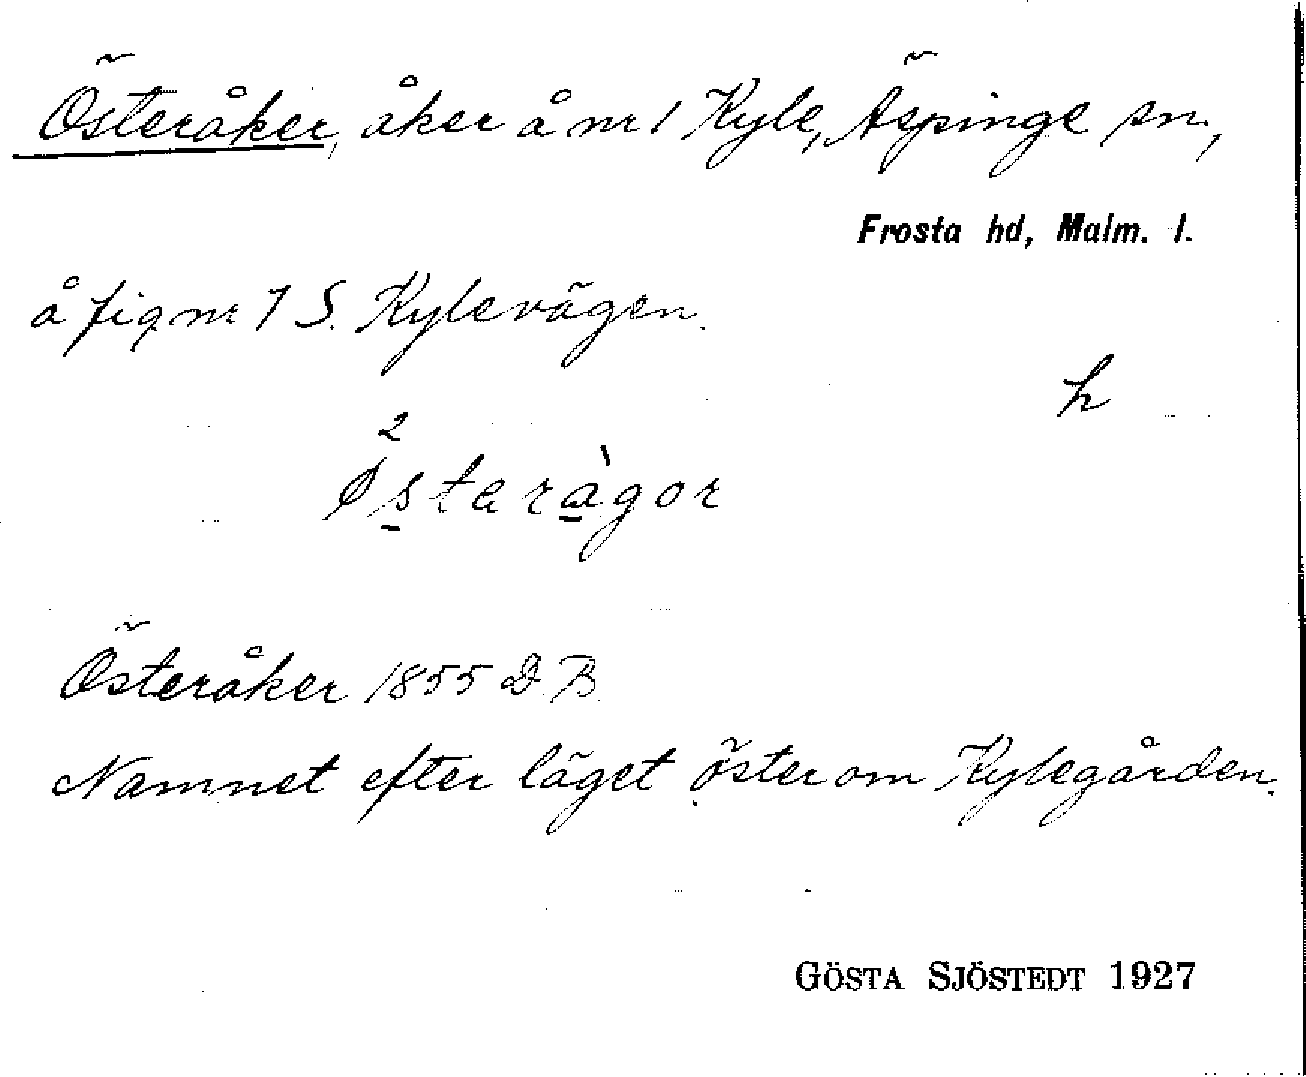 Österåker, åker å nr 1 Kyle, Äspinge sn,
Frosta hd, Malm. l.
å fig nr 7 S. Kylevägen.
h
2
Østeràgor
Österåker 1855 D. B.
Namnet efter läget öster om Kylegården.
GÖSTA SJÖSTEDT 1927